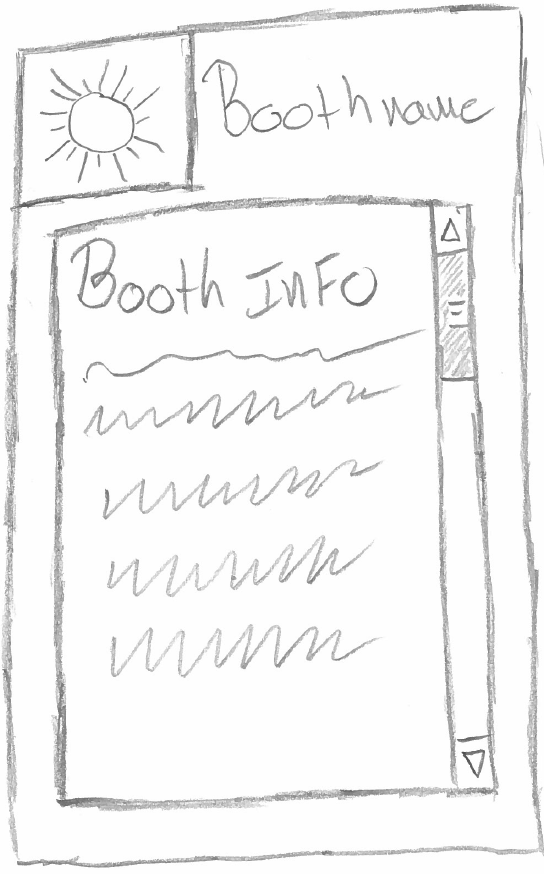 Booth name
Booth InFo